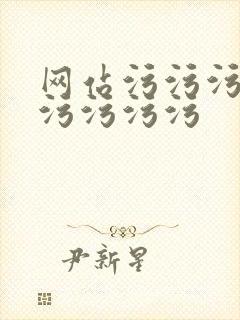 网占污污污
污污污污
尹新星